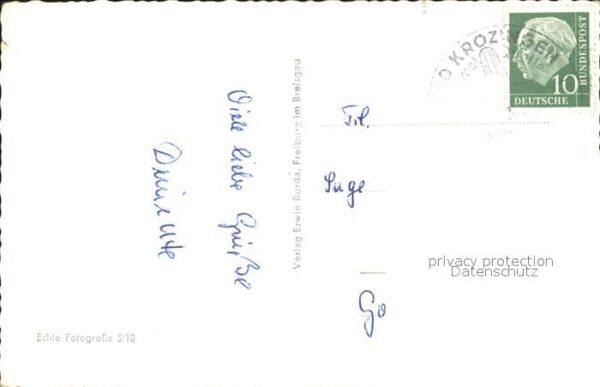 Viele liebe Grüße
Verlag Erwin Burda, Freiburg im Breisgau
Echte Fotografie 5/10
KROZINGEN
10
DEUTSCHE
BUNDESPOST
Frl.
Inge
Go
privacy protection
Datenschutz